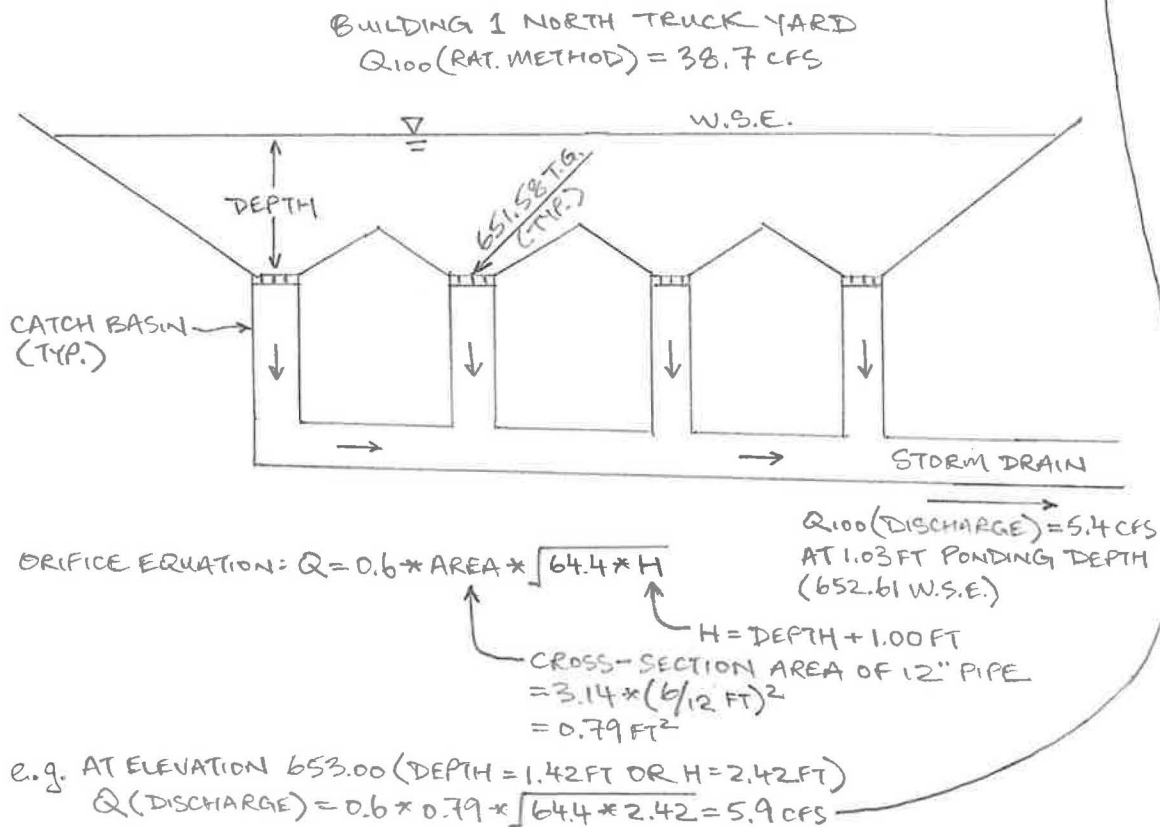 BUILDING 1 NORTH TRUCK YARD
Q100(RAT. METHOD) = 38.7 CFS
W.S.E.
DEPTH
651.58 T.G.
(TYP.)
CATCH BASIN
(TYP.)
STORM DRAIN
Q100(DISCHARGE) = 5.4 CFS
AT 1.03 FT PONDING DEPTH
(652.61 W.S.E.)
ORIFICE EQUATION: Q = 0.6 * AREA * √64.4 * H
H = DEPTH + 1.00 FT
CROSS-SECTION AREA OF 12" PIPE
= 3.14 * (6/12 FT)²
= 0.79 FT²
e.g. AT ELEVATION 653.00 (DEPTH = 1.42 FT OR H = 2.42 FT)
Q (DISCHARGE) = 0.6 * 0.79 * √64.4 * 2.42 = 5.9 CFS